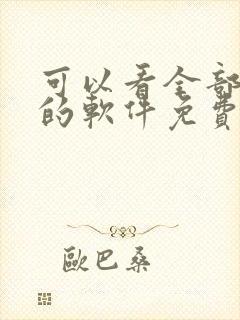 可以看全部
的軟件免費
歐巴桑